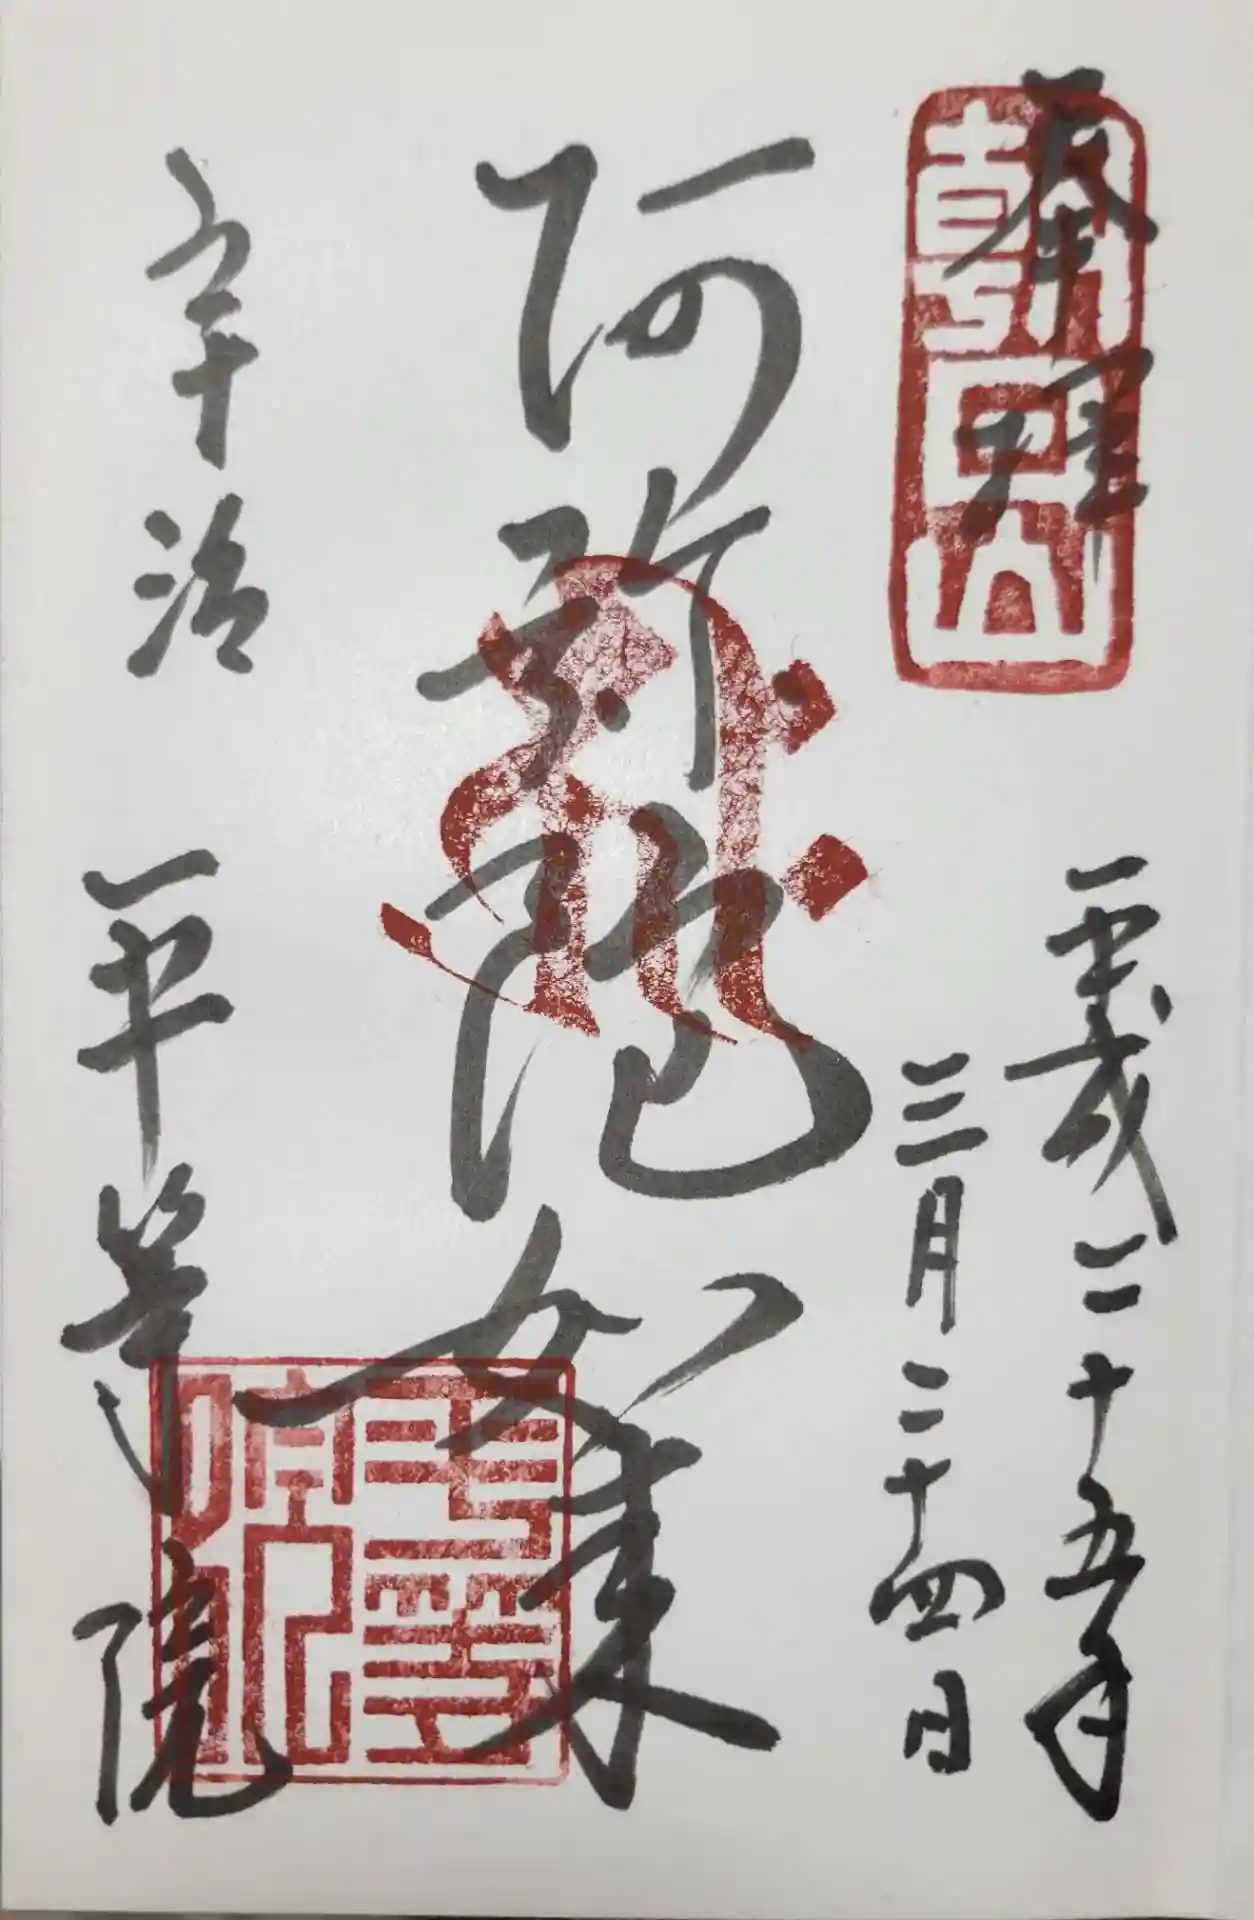 奉拝
朝日山
平成二十五年
三月二十四日
阿弥陀如来
宇治
平等院
平等院印